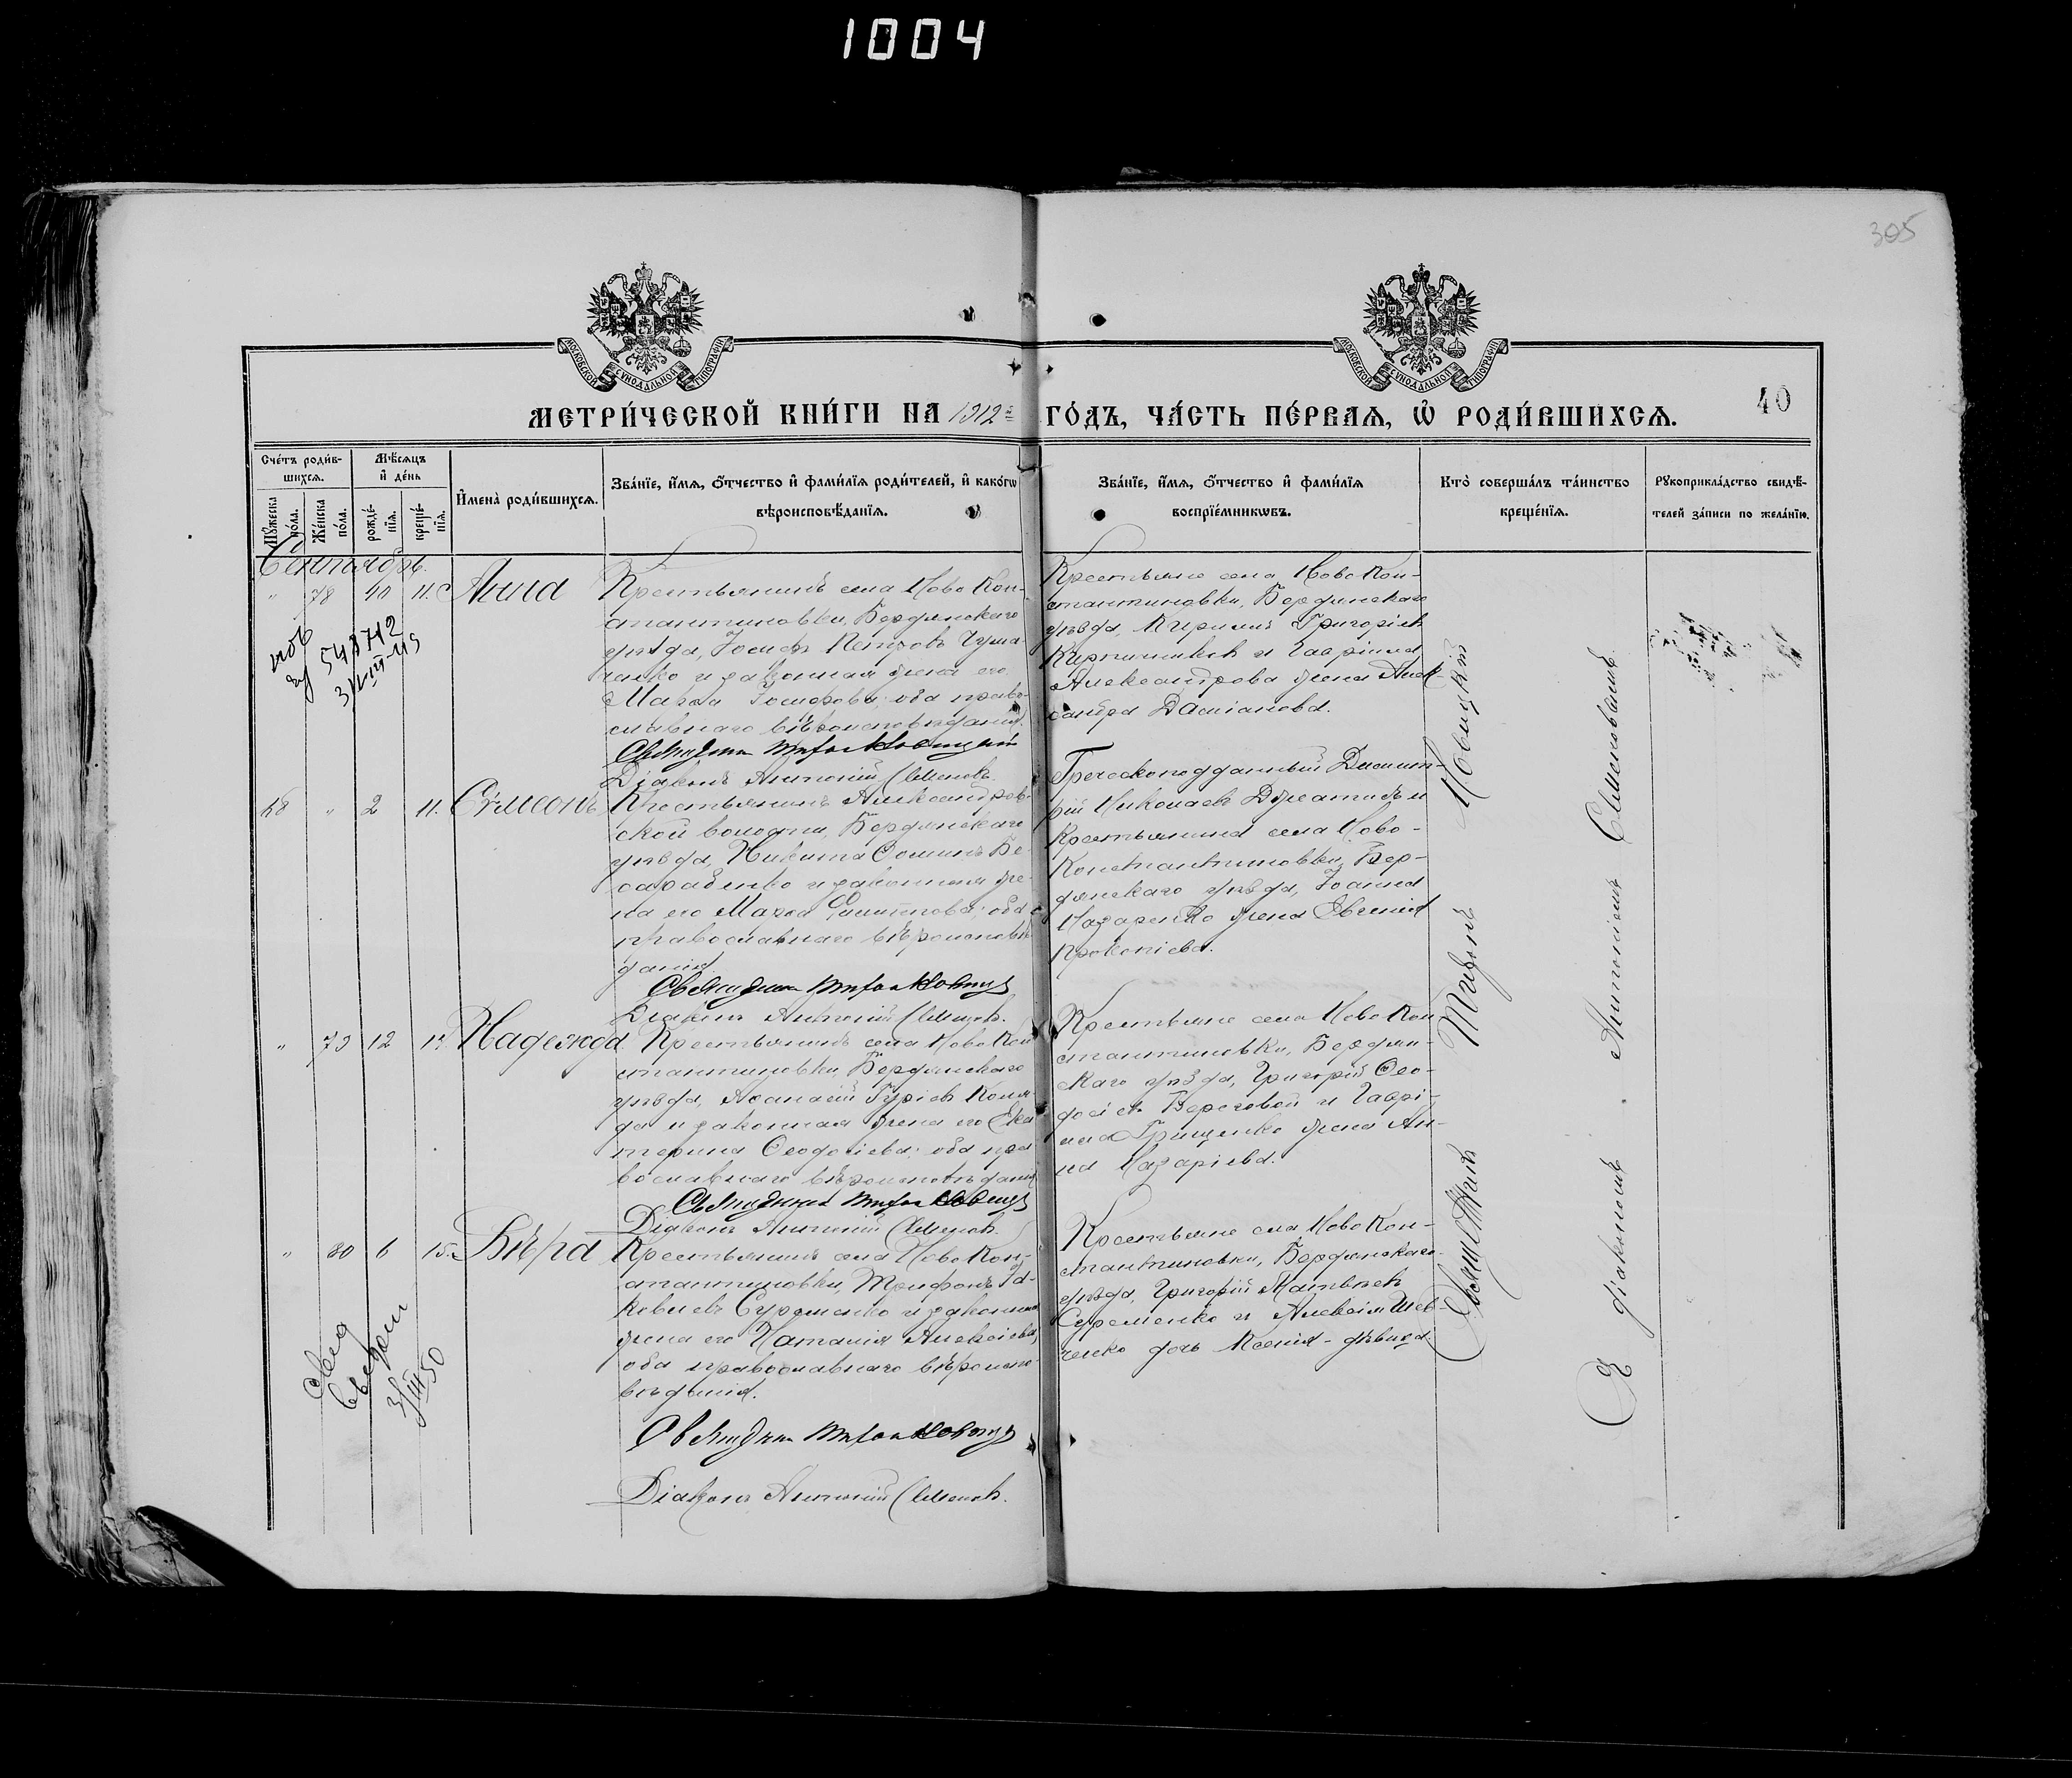 1004
305
МОСКОВСКОЙ СѴНОДАЛЬНОЙ ТИПОГРАФІИ
МОСКОВСКОЙ СѴНОДАЛЬНОЙ ТИПОГРАФІИ
МЕТРИ́ЧЕСКОЙ КНИ́ГИ НА 1912 ГО́ДЪ, ЧА́СТЬ ПЕ́РВАѦ, Ѡ҆ РОДИ́ВШИХСѦ.
40
Сче́тъ роди́в-
шихсѧ.
Мꙋ́жеска по́ла.
Же́нска по́ла.
Мѣ́сѧцъ
и҆ де́нь
рожде́-
нїѧ.
креще́-
нїѧ.
И҆мена̀ роди́вшихсѧ.
Зва́нїе, и҆́мѧ, ѻ҆́тчество и҆ фами́лїѧ роди́телей, и҆ како́гѡ
вѣроисповѣ́данїѧ.
Зва́нїе, и҆́мѧ, ѻ҆́тчество и҆ фами́лїѧ
воспрїе́мникѡвъ.
Кто̀ соверша́лъ та́инство
креще́нїѧ.
Рꙋкоприкла́дство свидѣ́-
телей за́писи по жела́нїю.
Сентябрь.
" 78 10 11. Анна
Крестьянинъ села Ново Кон-
стантиновки, Бердянскаго
уѣзда, Іосифъ Петровъ Чума-
ченко и законная жена его
Марѳа Іосифова, оба право-
славнаго вѣроисповѣданія.
Священникъ Новицкій
Діаконъ Антоній Семеновъ.
Крестьяне села Ново Кон-
стантиновки, Бердянскаго
уѣзда, Кириллъ Григоріевъ
Кирпичниковъ и Гавріила
Александрова жена Алек-
сандра Даміанова.
48 " 2 11. Сѵмеонъ
Крестьянинъ Александров-
ской волости, Бердянскаго
уѣзда, Никита Ѳоминъ Бе-
сарабенко и законная же-
на его Марѳа Филиппова; оба
православнаго вѣроисповѣ-
данія.
Священникъ Новицкій
Діаконъ Антоній Семеновъ.
Греческоподданный Димит-
рій Николаевъ и
Крестьянина села Ново-
Константиновки, Бер-
дянскаго уѣзда, Іоанна
Назаренко жена Евгенія
Прокопіева.
" 79 12 Надежда
Крестьянинъ села Ново Кон
стантиновки, Бердянскаго
уѣзда, Аѳанасій Гуріевъ Коля-
да и законная жена его Ека
терина Ѳеодосіева; оба пра
вославнаго вѣроисповѣданія
Священникъ Новицкій
Діаконъ Антоній Семеновъ.
Крестьяне села Ново Кон-
стантиновки, Бердян-
скаго уѣзда, Григорій Ѳео-
досіевъ Береговой и Гаврі-
ила Грищенко жена Ан-
на Назаріева.
" 80 6 15. Вѣра
Крестьянинъ села Ново Кон-
стантиновки, Трифонъ Іа-
ковлевъ и законная
жена его Наталія Алексіева,
оба православнаго вѣроиспо-
вѣданія.
Священникъ Новицкій
Діаконъ Антоній Семеновъ.
Крестьяне села Ново Кон-
стантиновки, Бердянскаго
уѣзда, Григорій Матвѣевъ
и Алексія Шев-
ченко дочь Ксенія - дѣвица.
548712
Новицкій
Съ діакономъ Антоніемъ Семеновымъ